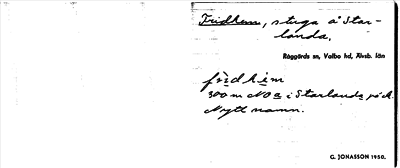 Fridhem, stuga å Star-
landa.
Råggärds sn, Valbo hd, Älvsb. län
frìdhèm
300 m NO a i Starlanda på k.
Nytt namn.
G. JONASSON 1950.